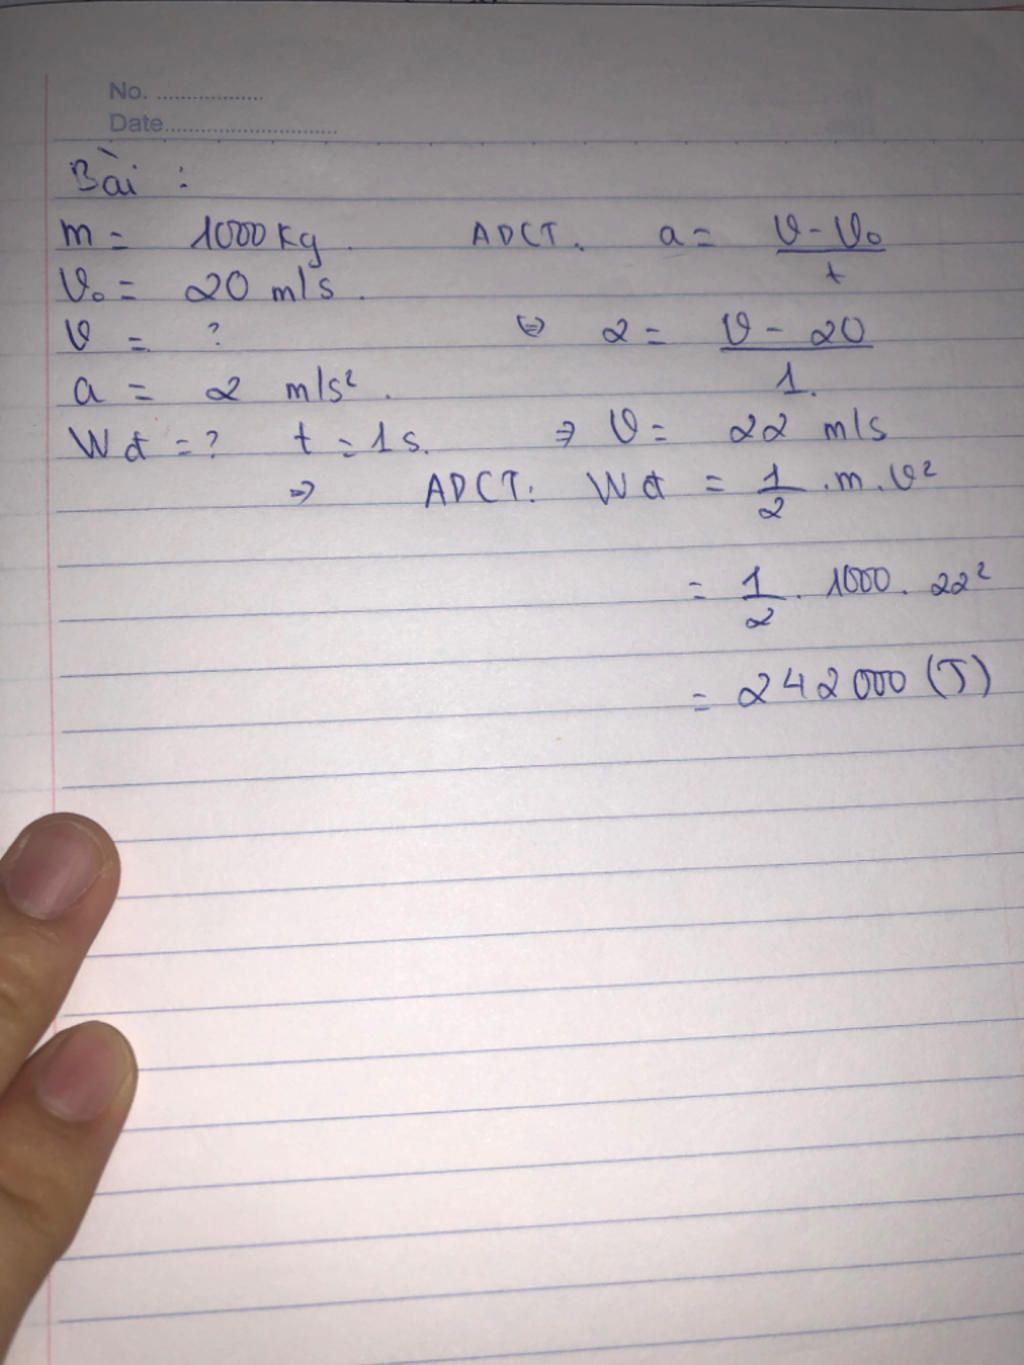 No. ..................
Date.............................
Bài :
m = 1000 kg. ADCT. a = (v - v₀)/t
v₀ = 20 m/s.
v = ? ⇔ 2 = (v - 20)/1.
a = 2 m/s².
Wđ = ? t = 1s. ⇒ v = 22 m/s
⇒ ADCT: Wđ = 1/2 . m . v²
= 1/2 . 1000 . 22²
= 242000 (J)